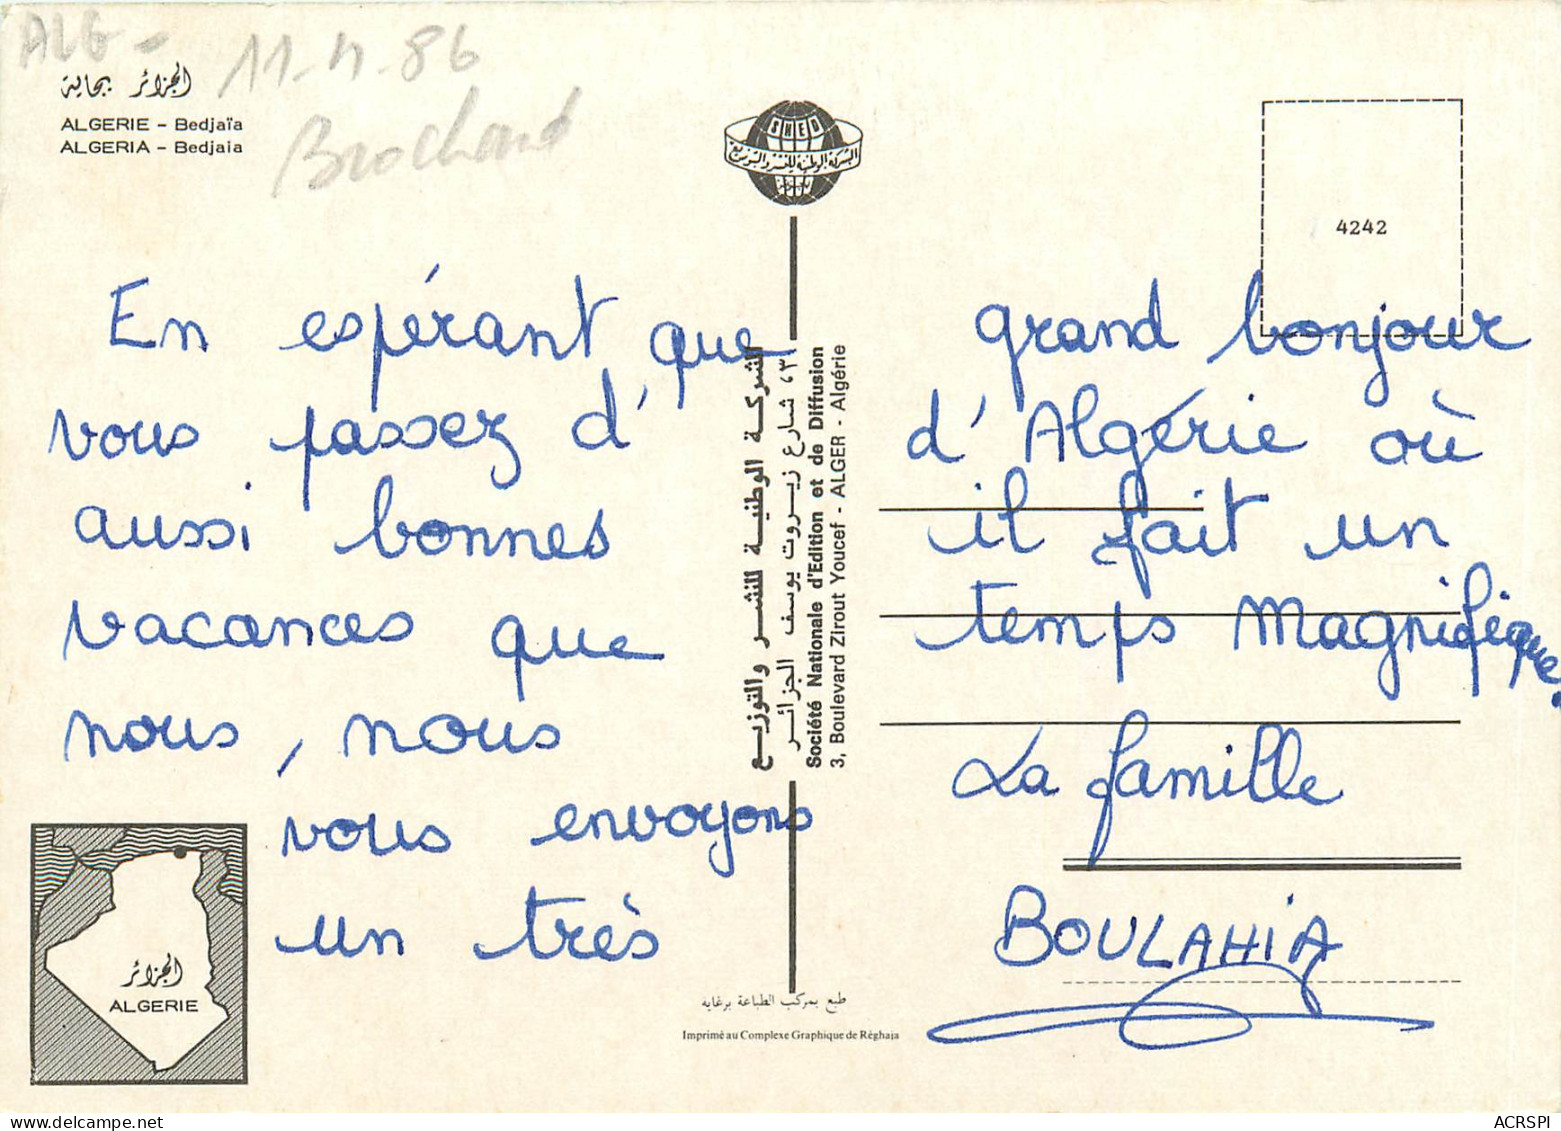 ALG - 11-11-86
Brochard
الجزائر بجاية
ALGERIE - Bedjaïa
ALGERIA - Bedjaia
SNED
الشركة الوطنية للنشر والتوزيع
4242
En espérant que
vous passez d'
aussi bonnes
vacances que
nous, nous
vous envoyons
un très
grand bonjour
d'Algérie où
il fait un
temps Magnifique.
La famille
BOULAHIA
الشركة الوطنية للنشر والتوزيع
٣، شارع زيروت يوسف الجزائر
Société Nationale d'Edition et de Diffusion
3, Boulevard Zirout Youcef - ALGER - Algérie
الجزائر
ALGERIE
طبع بمركب الطباعة برغاية
Imprimé au Complexe Graphique de Réghaia
ACRSPI